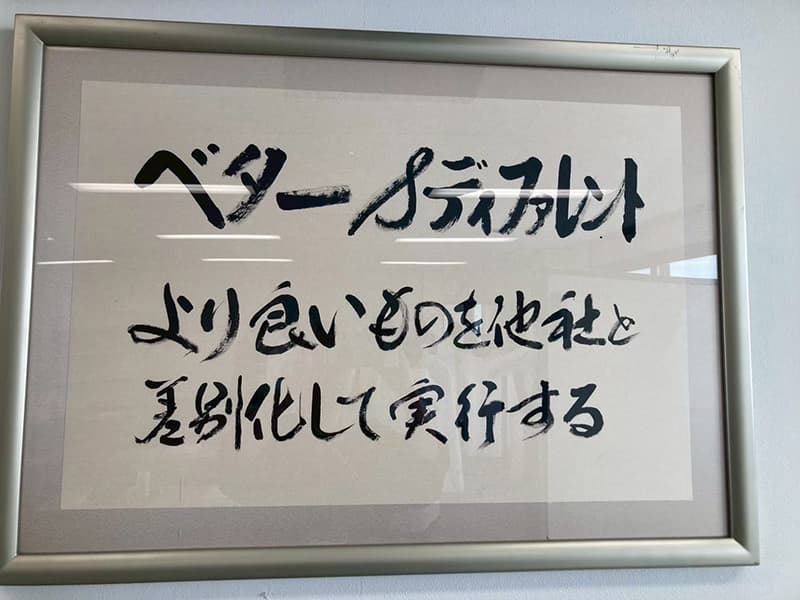 ベター&ディファレント
より良いものを他社と
差別化して実行する